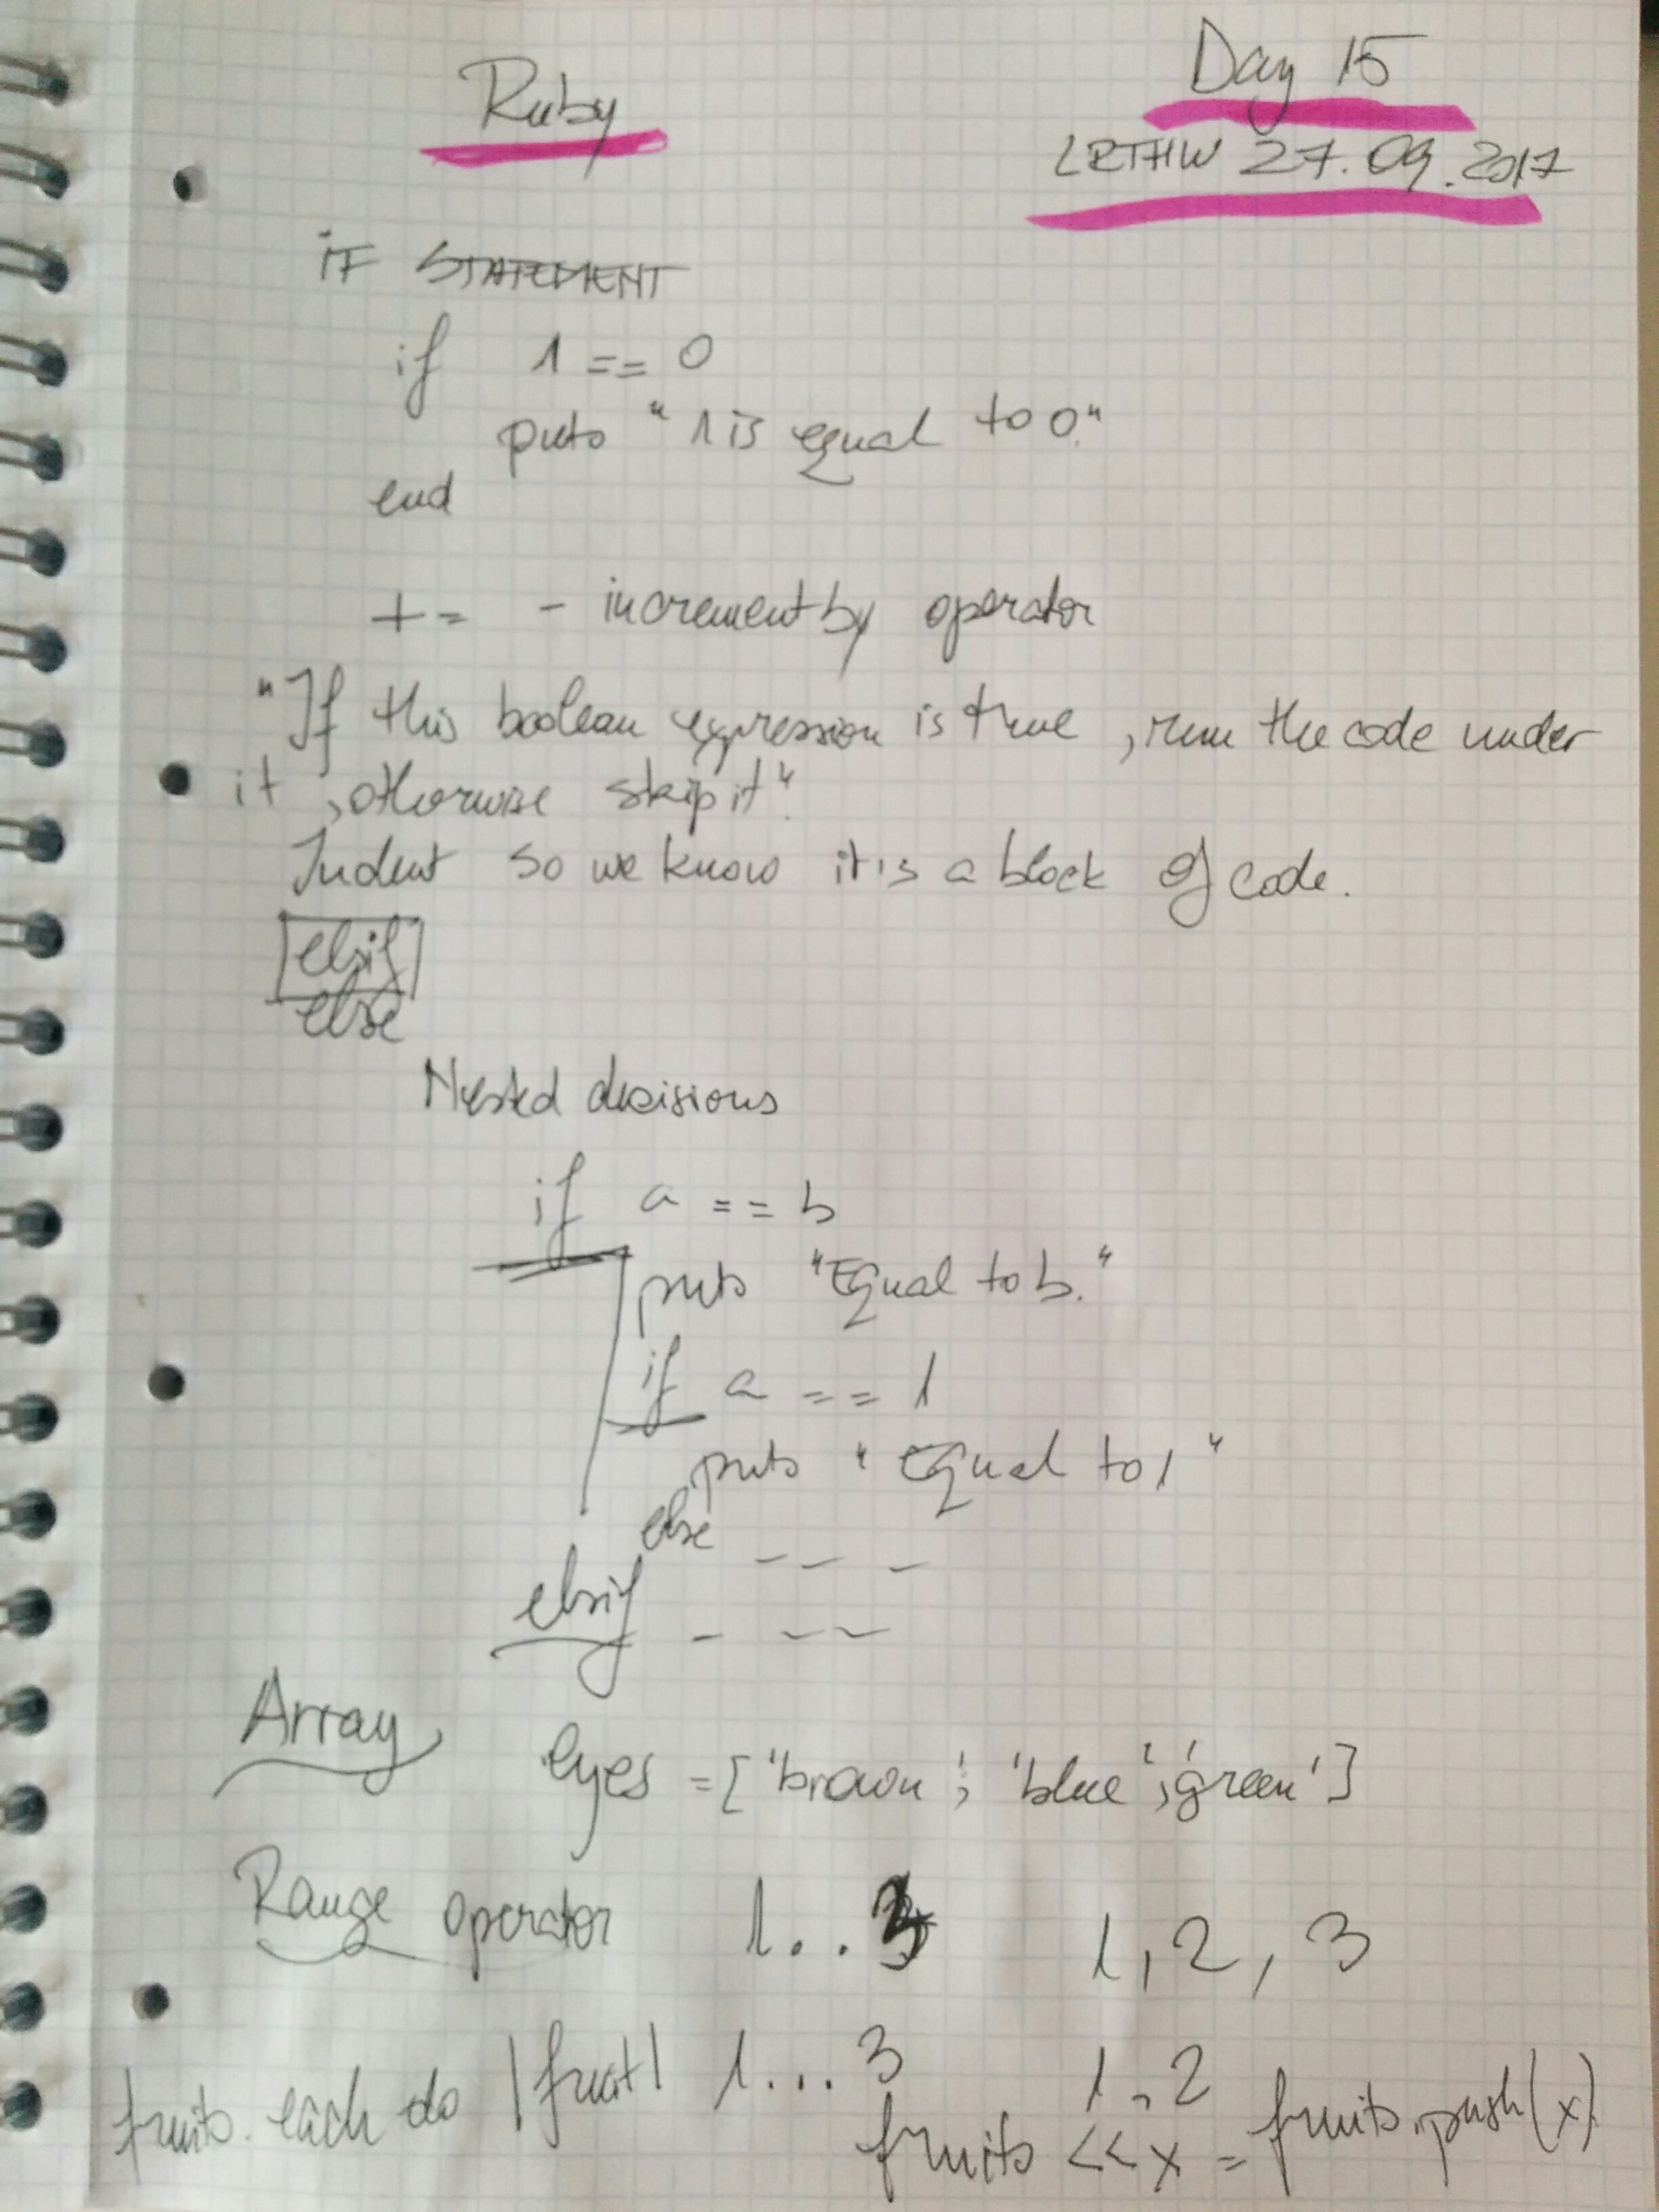 Ruby
Day 15
LRTHW 27.09.2017
IF STATEMENT
if 1 == 0
puts "1 is equal to 0."
end
+= - increment by operator
"If this boolean expression is true, run the code under
it, otherwise skip it".
Indent so we know it is a block of code.
elsif
else
Nested decisions
if a == b
puts "Equal to b."
if a == 1
puts "Equal to 1"
else _ _ _
elsif _ _ _
Array eyes = ['brown', 'blue', 'green']
Range operator 1..3 1, 2, 3
1...3 1, 2
fruits.each do |fruit|
fruits << x = fruits.push(x)